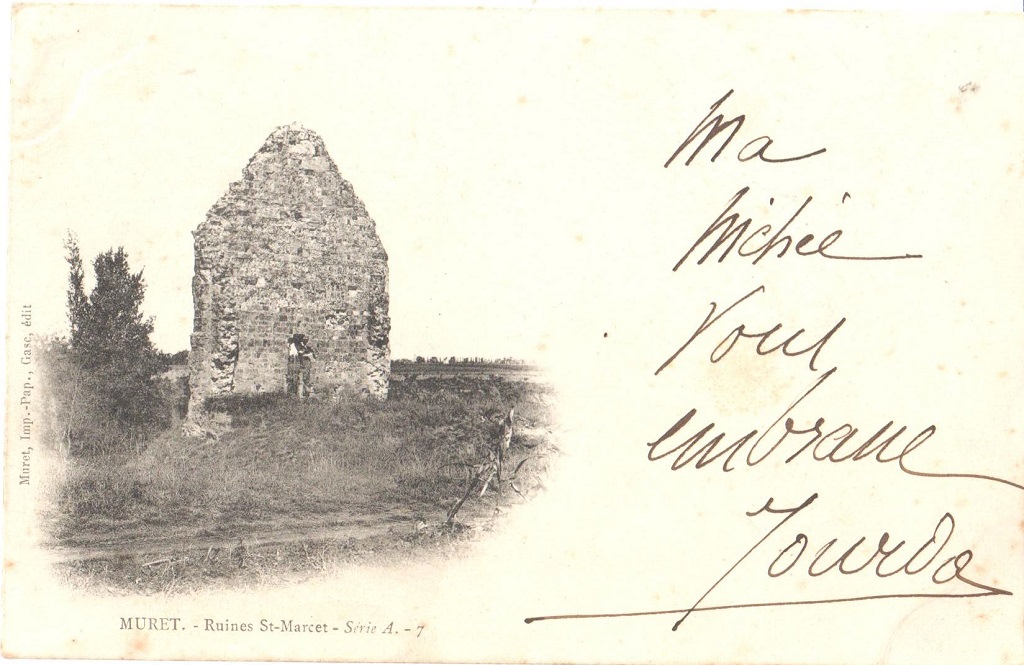 Muret, Imp.-Pap., Gasc, édit
MURET. - Ruines St-Marcet - Série A. - 7
Ma
Michée
Vous
embrasse
Jourda